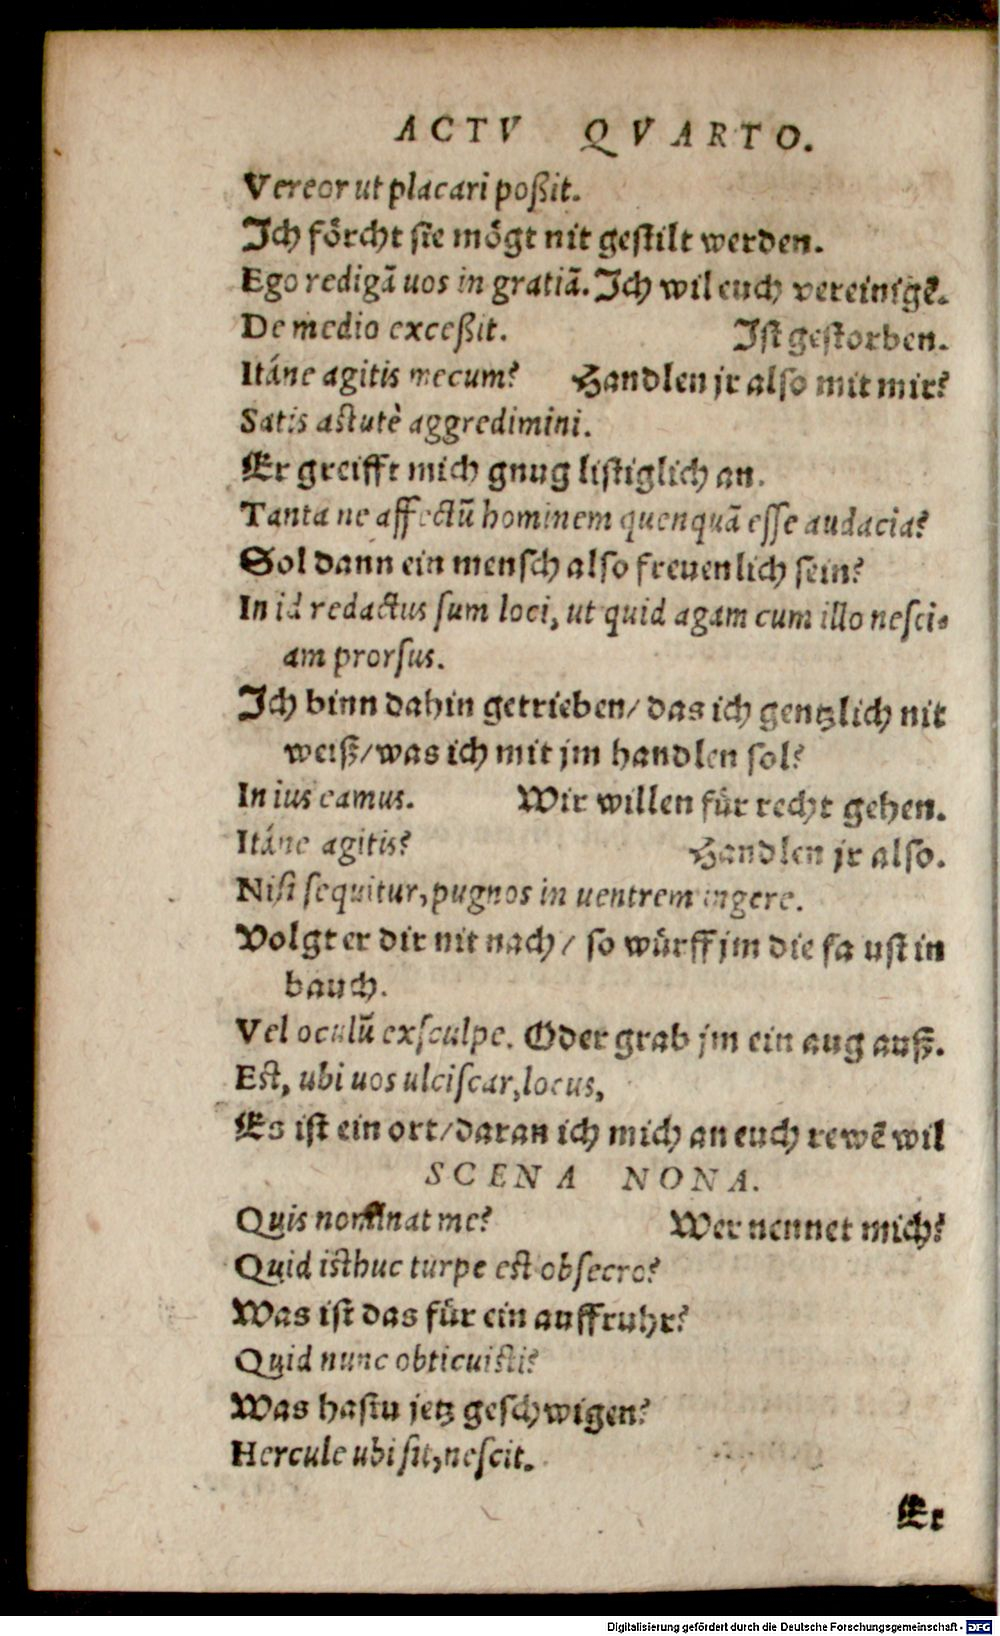 ACTV QVARTO.
Vereor ut placari poßit.
Ich förcht sie mögt nit gestilt werden.
Ego redigã uos in gratiã. Ich wil euch vereinigẽ.
De medio exceßit. Ist gestorben.
Itáne agitis mecum? Handlen jr also mit mir?
Satis astutè aggredimini.
Er greifft mich gnug listiglich an.
Tanta ne affectũ hominem quenquã esse audacia?
Sol dann ein mensch also freuenlich sein?
In id redactus sum loci, ut quid agam cum illo nesci-
am prorsus.
Ich binn dahin getrieben/ das ich gentzlich nit
weiß/ was ich mit jm handlen sol?
In ius eamus. Wir willen für recht gehen.
Itáne agitis? Handlen jr also.
Nisi sequitur, pugnos in uentrem ingere.
Volgt er dir nit nach/ so würff jm die fa ust in
bauch.
Vel oculũ exsculpe. Oder grab jm ein aug auß.
Est, ubi uos ulciscar, locus,
Es ist ein ort/ daran ich mich an euch rewẽ wil
SCENA NONA.
Quis nominat me? Wer nennet mich?
Quid isthuc turpe est obsecro?
Was ist das für ein auffruhr?
Quid nunc obticuisti?
Was hastu jetz geschwigen?
Hercule ubi sit, nescit.
Er
Digitalisierung gefördert durch die Deutsche Forschungsgemeinschaft - DFG